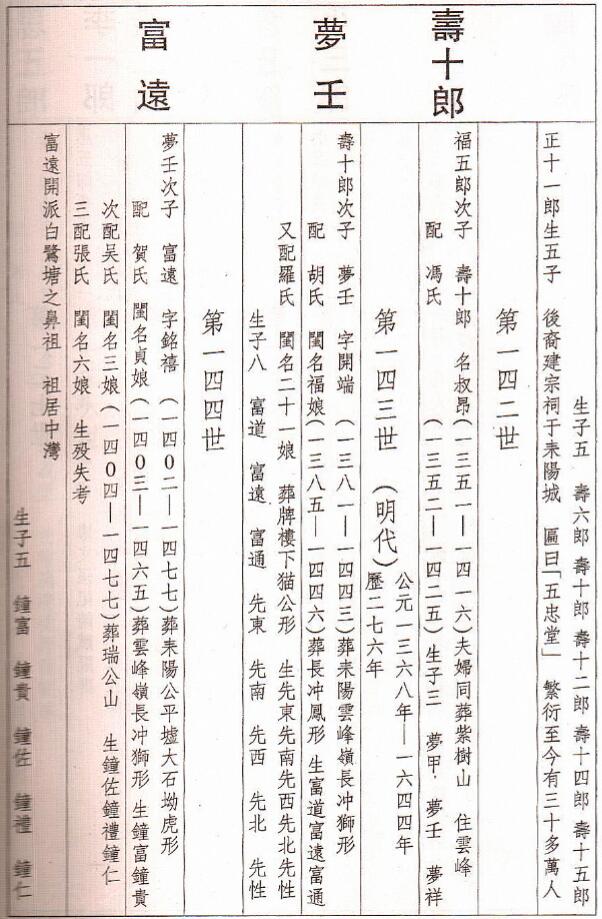 壽十郎
夢壬
富遠
生子五 壽六郎 壽十郎 壽十二郎 壽十四郎 壽十五郎
正十一郎生五子 後裔建宗祠于耒陽城 匾曰「五忠堂」 繁衍至今有三十多萬人
第一四二世
福五郎次子 壽十郎 名叔昂(一三五一—一四一六)夫婦同葬紫樹山 住雲峰
配 馮氏 (一三五二—一四二五)生子三 夢甲，夢壬 夢祥
第一四三世 (明代)公元一三六八年—一六四四年
歷二七六年
壽十郎次子 夢壬 字開端 (一三八一—一四四三)葬耒陽雲峰嶺長冲獅形
配 胡氏 閨名福娘(一三八五—一四四六)葬長冲鳳形 生富道富遠富通
又配羅氏 閨名二十一娘 葬牌樓下猫公形 生先東先南先西先北先性
生子八 富道 富遠 富通 先東 先南 先西 先北 先性
第一四四世
夢壬次子 富遠 字銘禧 (一四0二—一四七七)葬耒陽公平墟大石坳虎形
配 賀氏 閨名貞娘(一四0三—一四六五)葬雲峰嶺長冲獅形 生鐘富鐘貴
次配吴氏 閨名三娘(一四0四—一四七七)葬瑞公山 生鐘佐鐘禮鐘仁
三配張氏 閨名六娘 生殁失考
富遠開派白鷺塘之鼻祖 祖居中灣
生子五 鐘富 鐘貴 鐘佐 鐘禮 鐘仁